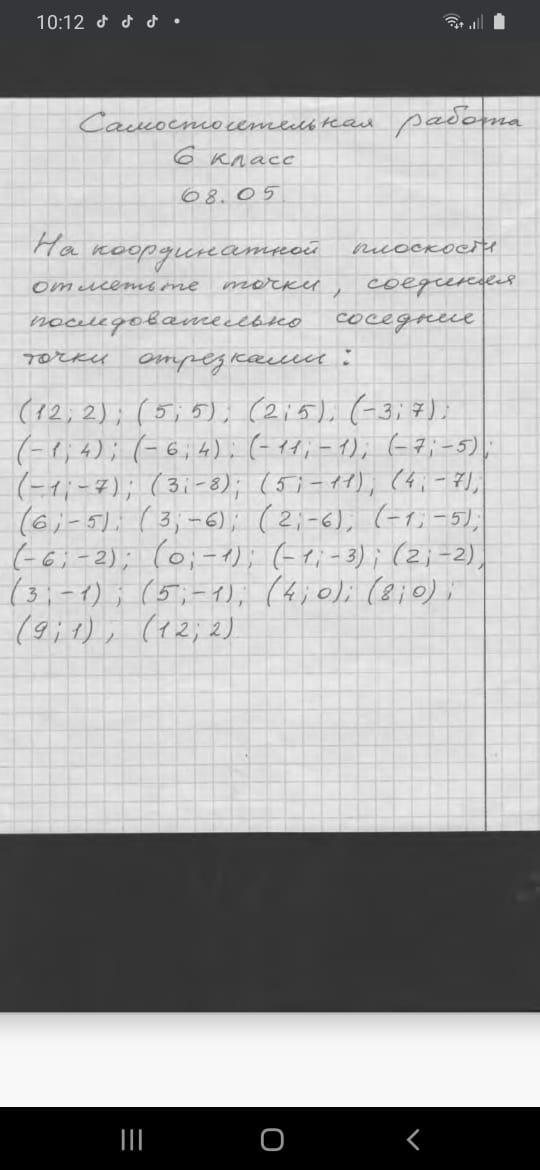 10:12
Самостоятельная работа
6 класс
08.05
На координатной плоскости
отметьте точки, соединяя
последовательно соседние
точки отрезками:
(12; 2); (5; 5); (2; 5), (-3; 7);
(-1; 4); (-6; 4); (-11; -1); (-7; -5);
(-1; -7); (3; -8); (5; -11), (4; -7),
(6; -5); (3; -6); (2; -6), (-1; -5);
(-6; -2); (0; -1); (-1; -3); (2; -2),
(3; -1); (5; -1); (4; 0); (8; 0);
(9; 1), (12; 2)